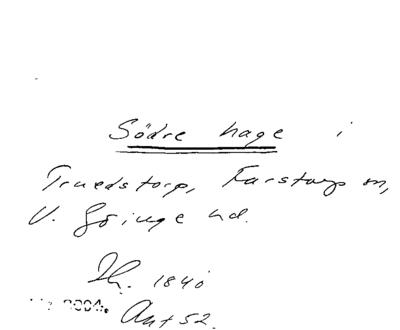 Södre hage i
Truedstorp, Farstorp sn,
V. Göinge hd.
Th. 1840
Akt 52.